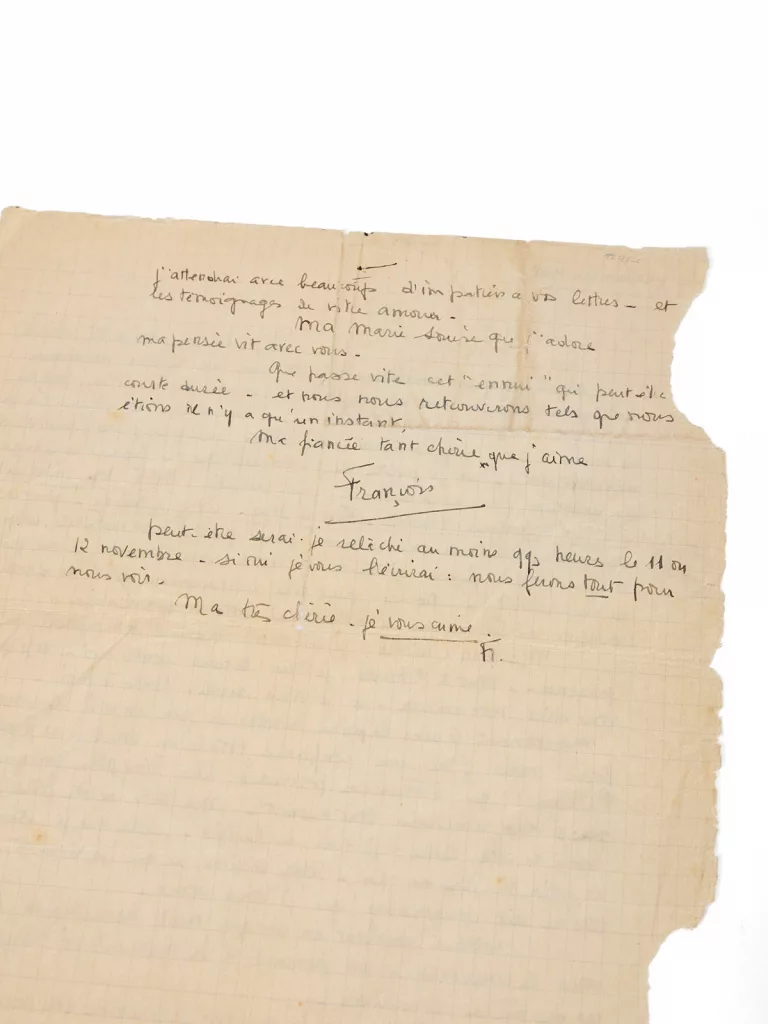 j'attendrai avec beaucoup d'impatience vos lettres - et
les témoignages de votre amour.
Ma Marie Louise que j'adore
ma pensée vit avec vous.
Que passe vite cet "ennui" qui peut être
courte durée - et nous nous retrouverons tels que nous
étions il n'y a qu'un instant.
Ma fiancée tant chérie que j'aime
François
peut-être serai-je relâché au moins qqs heures le 11 ou
12 novembre - si oui je vous l'écrirai : nous ferons tout pour
nous voir.
Ma très chérie - je vous aime.
Fr.